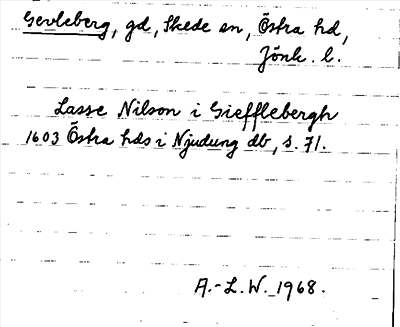 Gevleberg, gd, Skede sn, Östra hd,
Jönk. l.
Lasse Nilson i Giefflebergh
1603 Östra hds i Njudung db, s. 71.
A.-L.W. 1968.